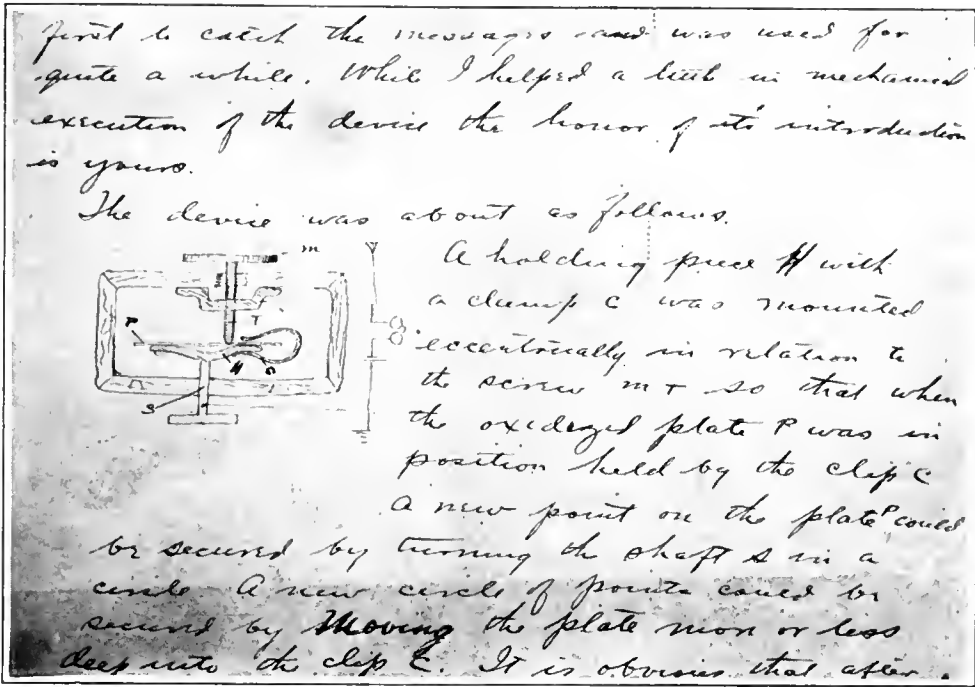 first to catch the messages and was used for
quite a while. While I helped a little in mechanical
execution of the device the honor of it's introduction
is yours.
The device was about as follows.
m
T
P
H
C
S
A holding piece H with
a clamp C was mounted
eccentrically in relation to
the screw m T so that when
the oxidized plate P was in
position held by the clip C
A new point on the plate P could
be secured by turning the shaft s in a
circle A new circle of points could be
secured by Moving the plate more or less
deep into the clip C. It is obvious that after.